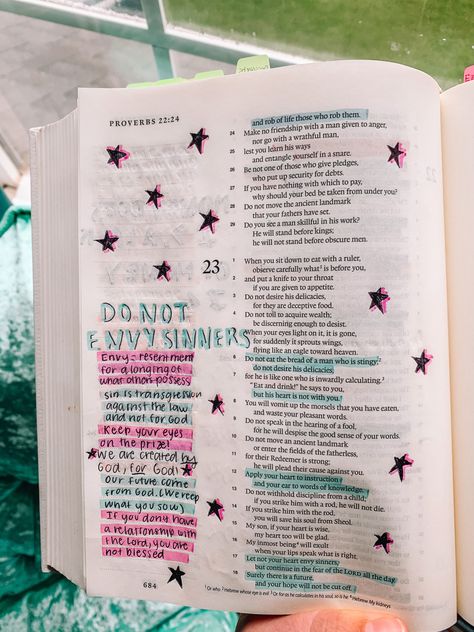 PROVERBS 22:24
and rob of life those who rob them.
24 Make no friendship with a man given to anger,
nor go with a wrathful man,
25 lest you learn his ways
and entangle yourself in a snare.
26 Be not one of those who give pledges,
who put up security for debts.
27 If you have nothing with which to pay,
why should your bed be taken from under you?
28 Do not move the ancient landmark
that your fathers have set.
29 Do you see a man skillful in his work?
He will stand before kings;
he will not stand before obscure men.
23
1 When you sit down to eat with a ruler,
observe carefully what¹ is before you,
2 and put a knife to your throat
if you are given to appetite.
3 Do not desire his delicacies,
for they are deceptive food.
4 Do not toil to acquire wealth;
be discerning enough to desist.
5 When your eyes light on it, it is gone,
for suddenly it sprouts wings,
flying like an eagle toward heaven.
6 Do not eat the bread of a man who is stingy;²
do not desire his delicacies,
7 for he is like one who is inwardly calculating.³
"Eat and drink!" he says to you,
but his heart is not with you.
8 You will vomit up the morsels that you have eaten,
and waste your pleasant words.
9 Do not speak in the hearing of a fool,
for he will despise the good sense of your words.
10 Do not move an ancient landmark
or enter the fields of the fatherless,
11 for their Redeemer is strong;
he will plead their cause against you.
12 Apply your heart to instruction
and your ear to words of knowledge.
13 Do not withhold discipline from a child;
if you strike him with a rod, he will not die.
14 If you strike him with the rod,
you will save his soul from Sheol.
15 My son, if your heart is wise,
my heart too will be glad.
16 My inmost being⁴ will exult
when your lips speak what is right.
17 Let not your heart envy sinners,
but continue in the fear of the LORD all the day.
18 Surely there is a future,
and your hope will not be cut off.
DO NOT
ENVY SINNERS
Envy = resentment
for a longing of
what others possess
sin is transgression
against the law
and not for God
Keep your eyes
on the prize!
We are created by
God, for God
Our future come
from God. (We reep
what you sow)
If you don't have
a relationship with
the Lord, you are
not blessed
684
¹ Or who ² Hebrew whose eye is evil ³ Or for as he calculates in his soul, so is he ⁴ Hebrew My kidneys